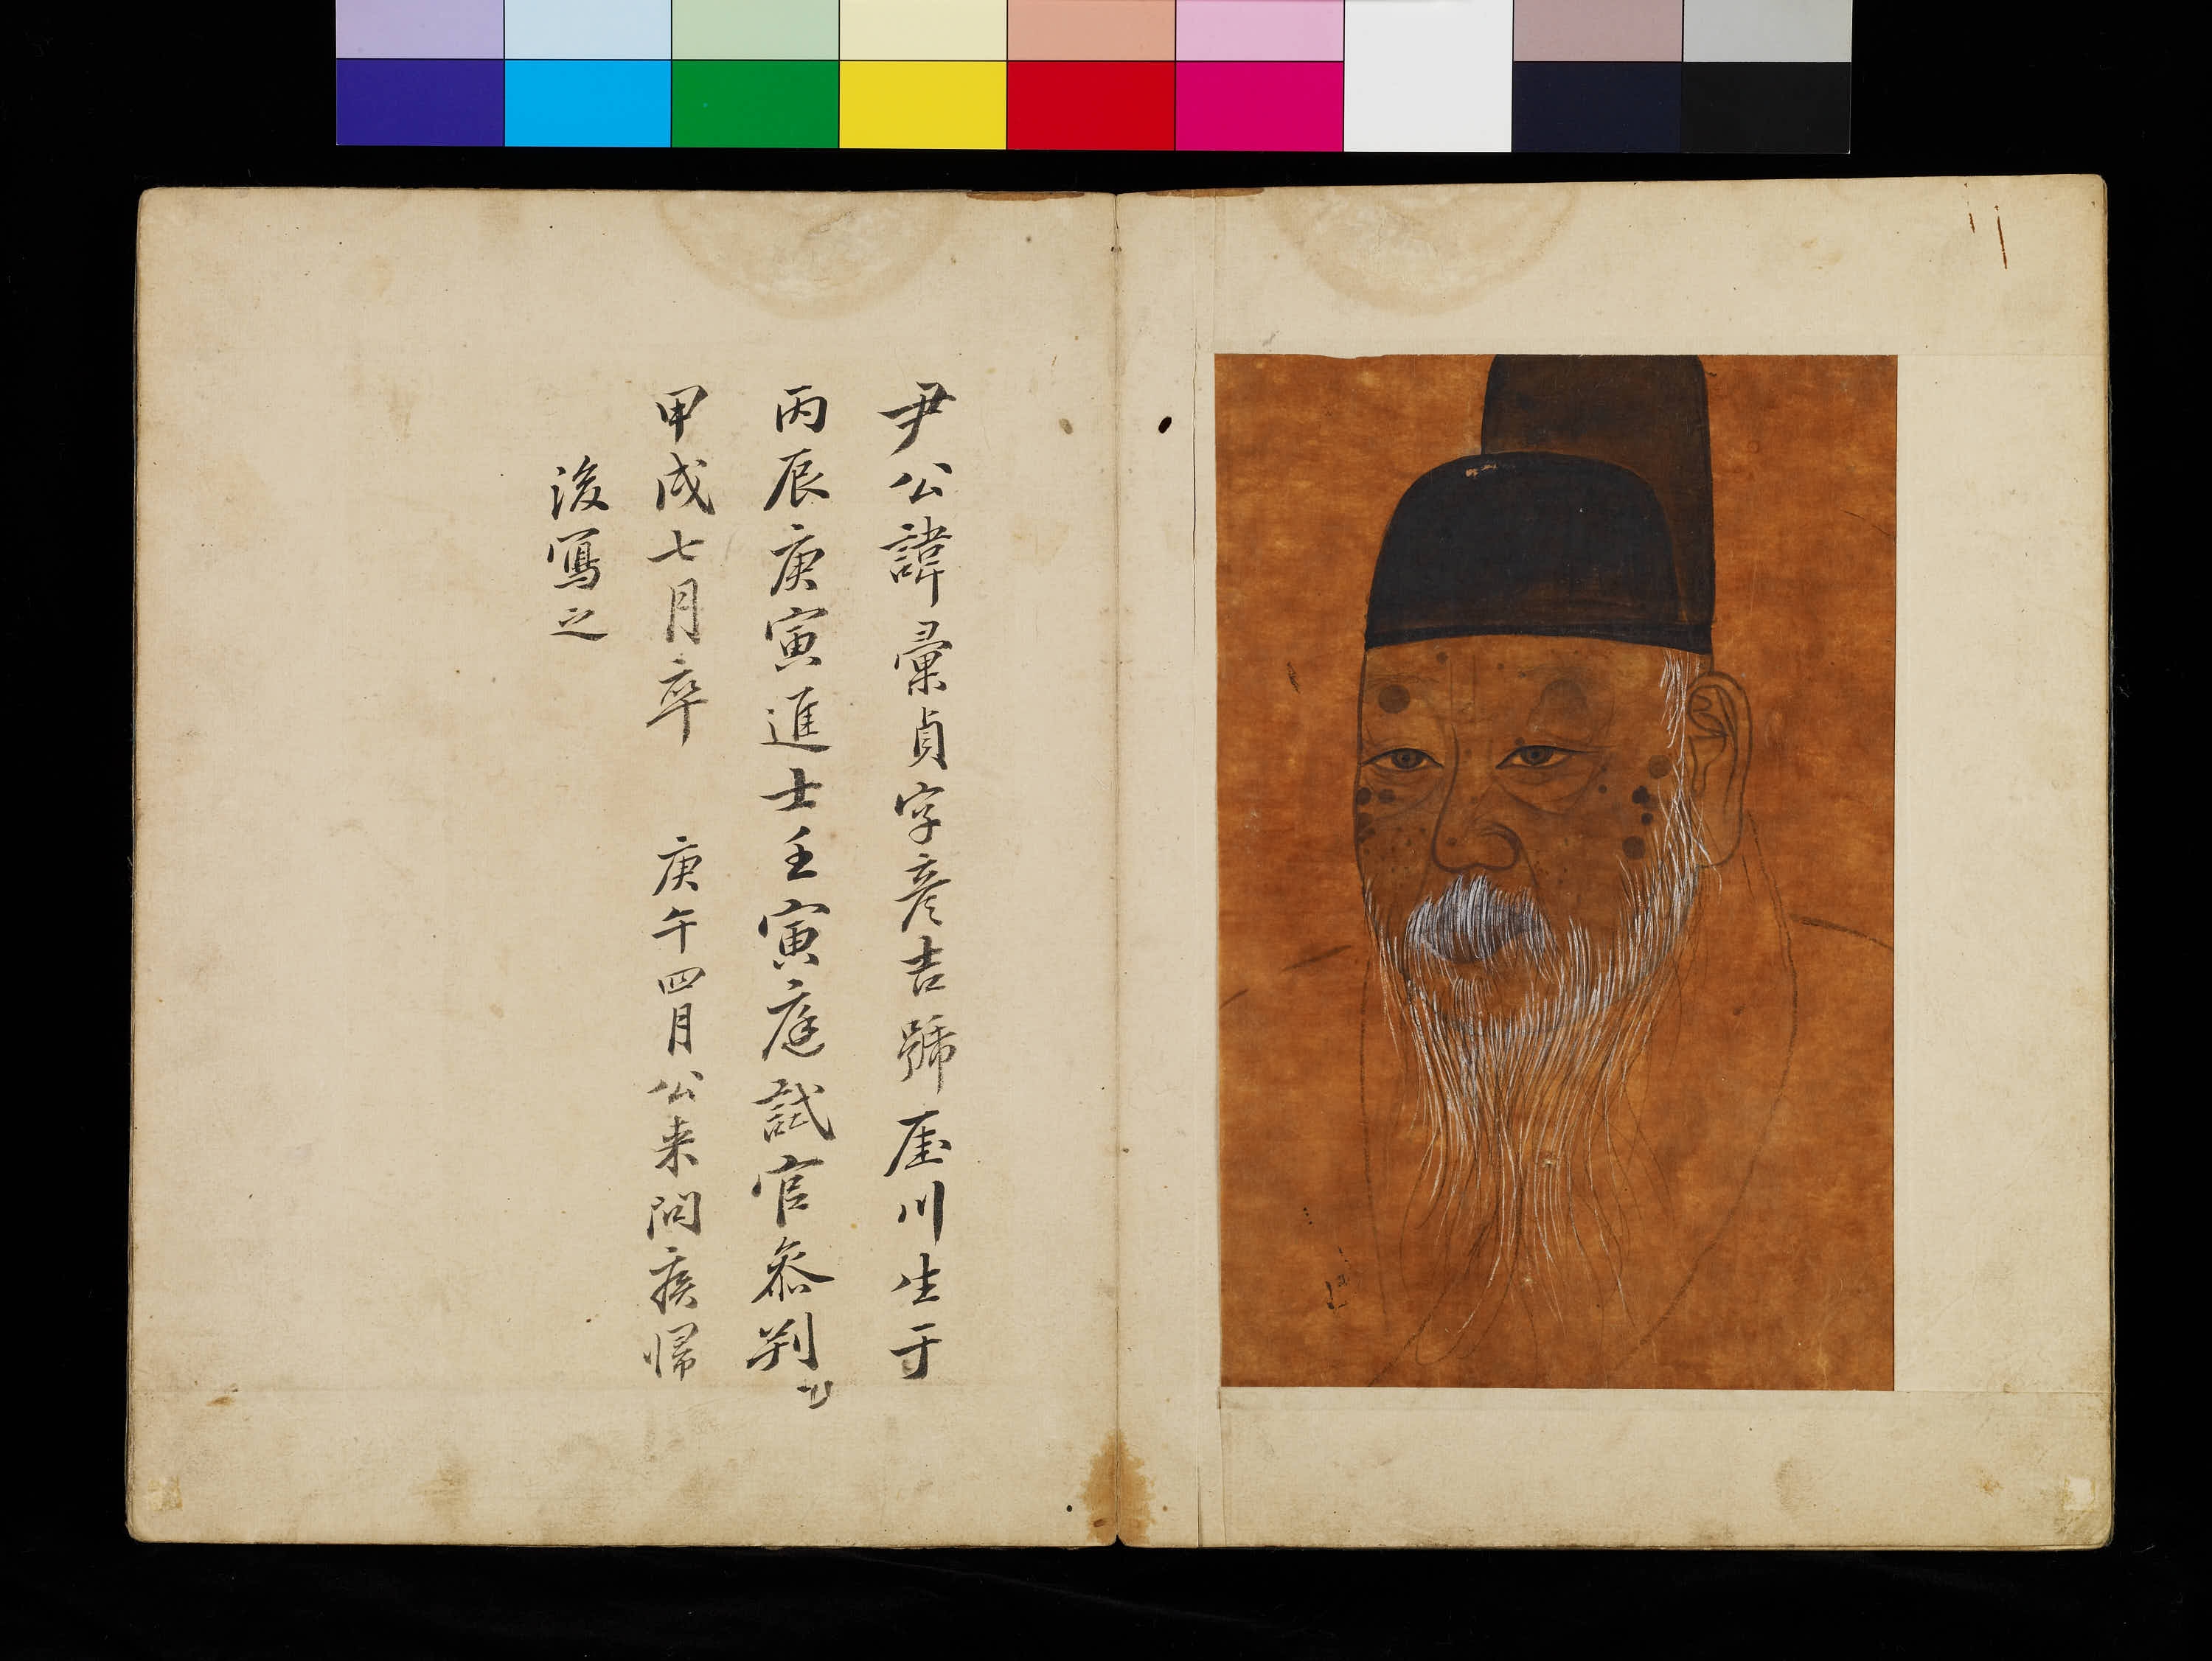 尹公諱彙貞字彦吉號厓川生于
丙辰庚寅進士壬寅庭試官叅判
甲戌七月卒 庚午四月公来問疾帰
後寫之